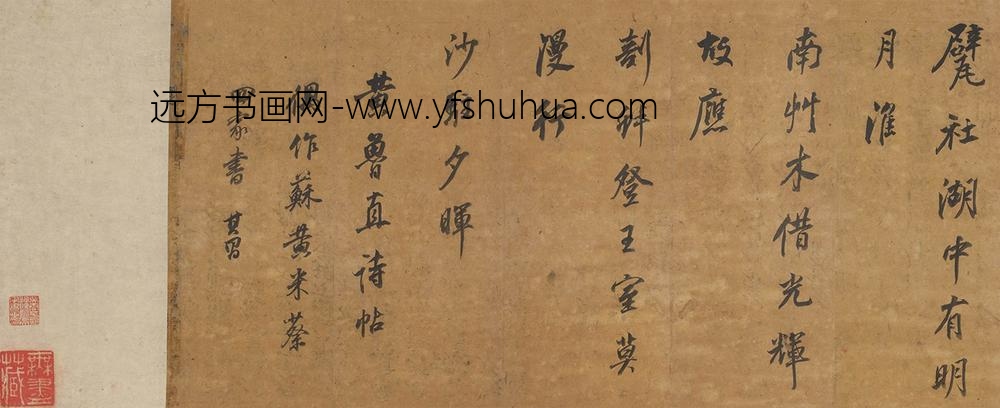 甓社湖中有明
月淮
南艸木借光輝
故應
剖蚌登王室莫
漫行
沙弄夕暉
黃魯直詩帖
偶作蘇黃米蔡
四家書 其昌
远方书画网-www.yfshuhua.com